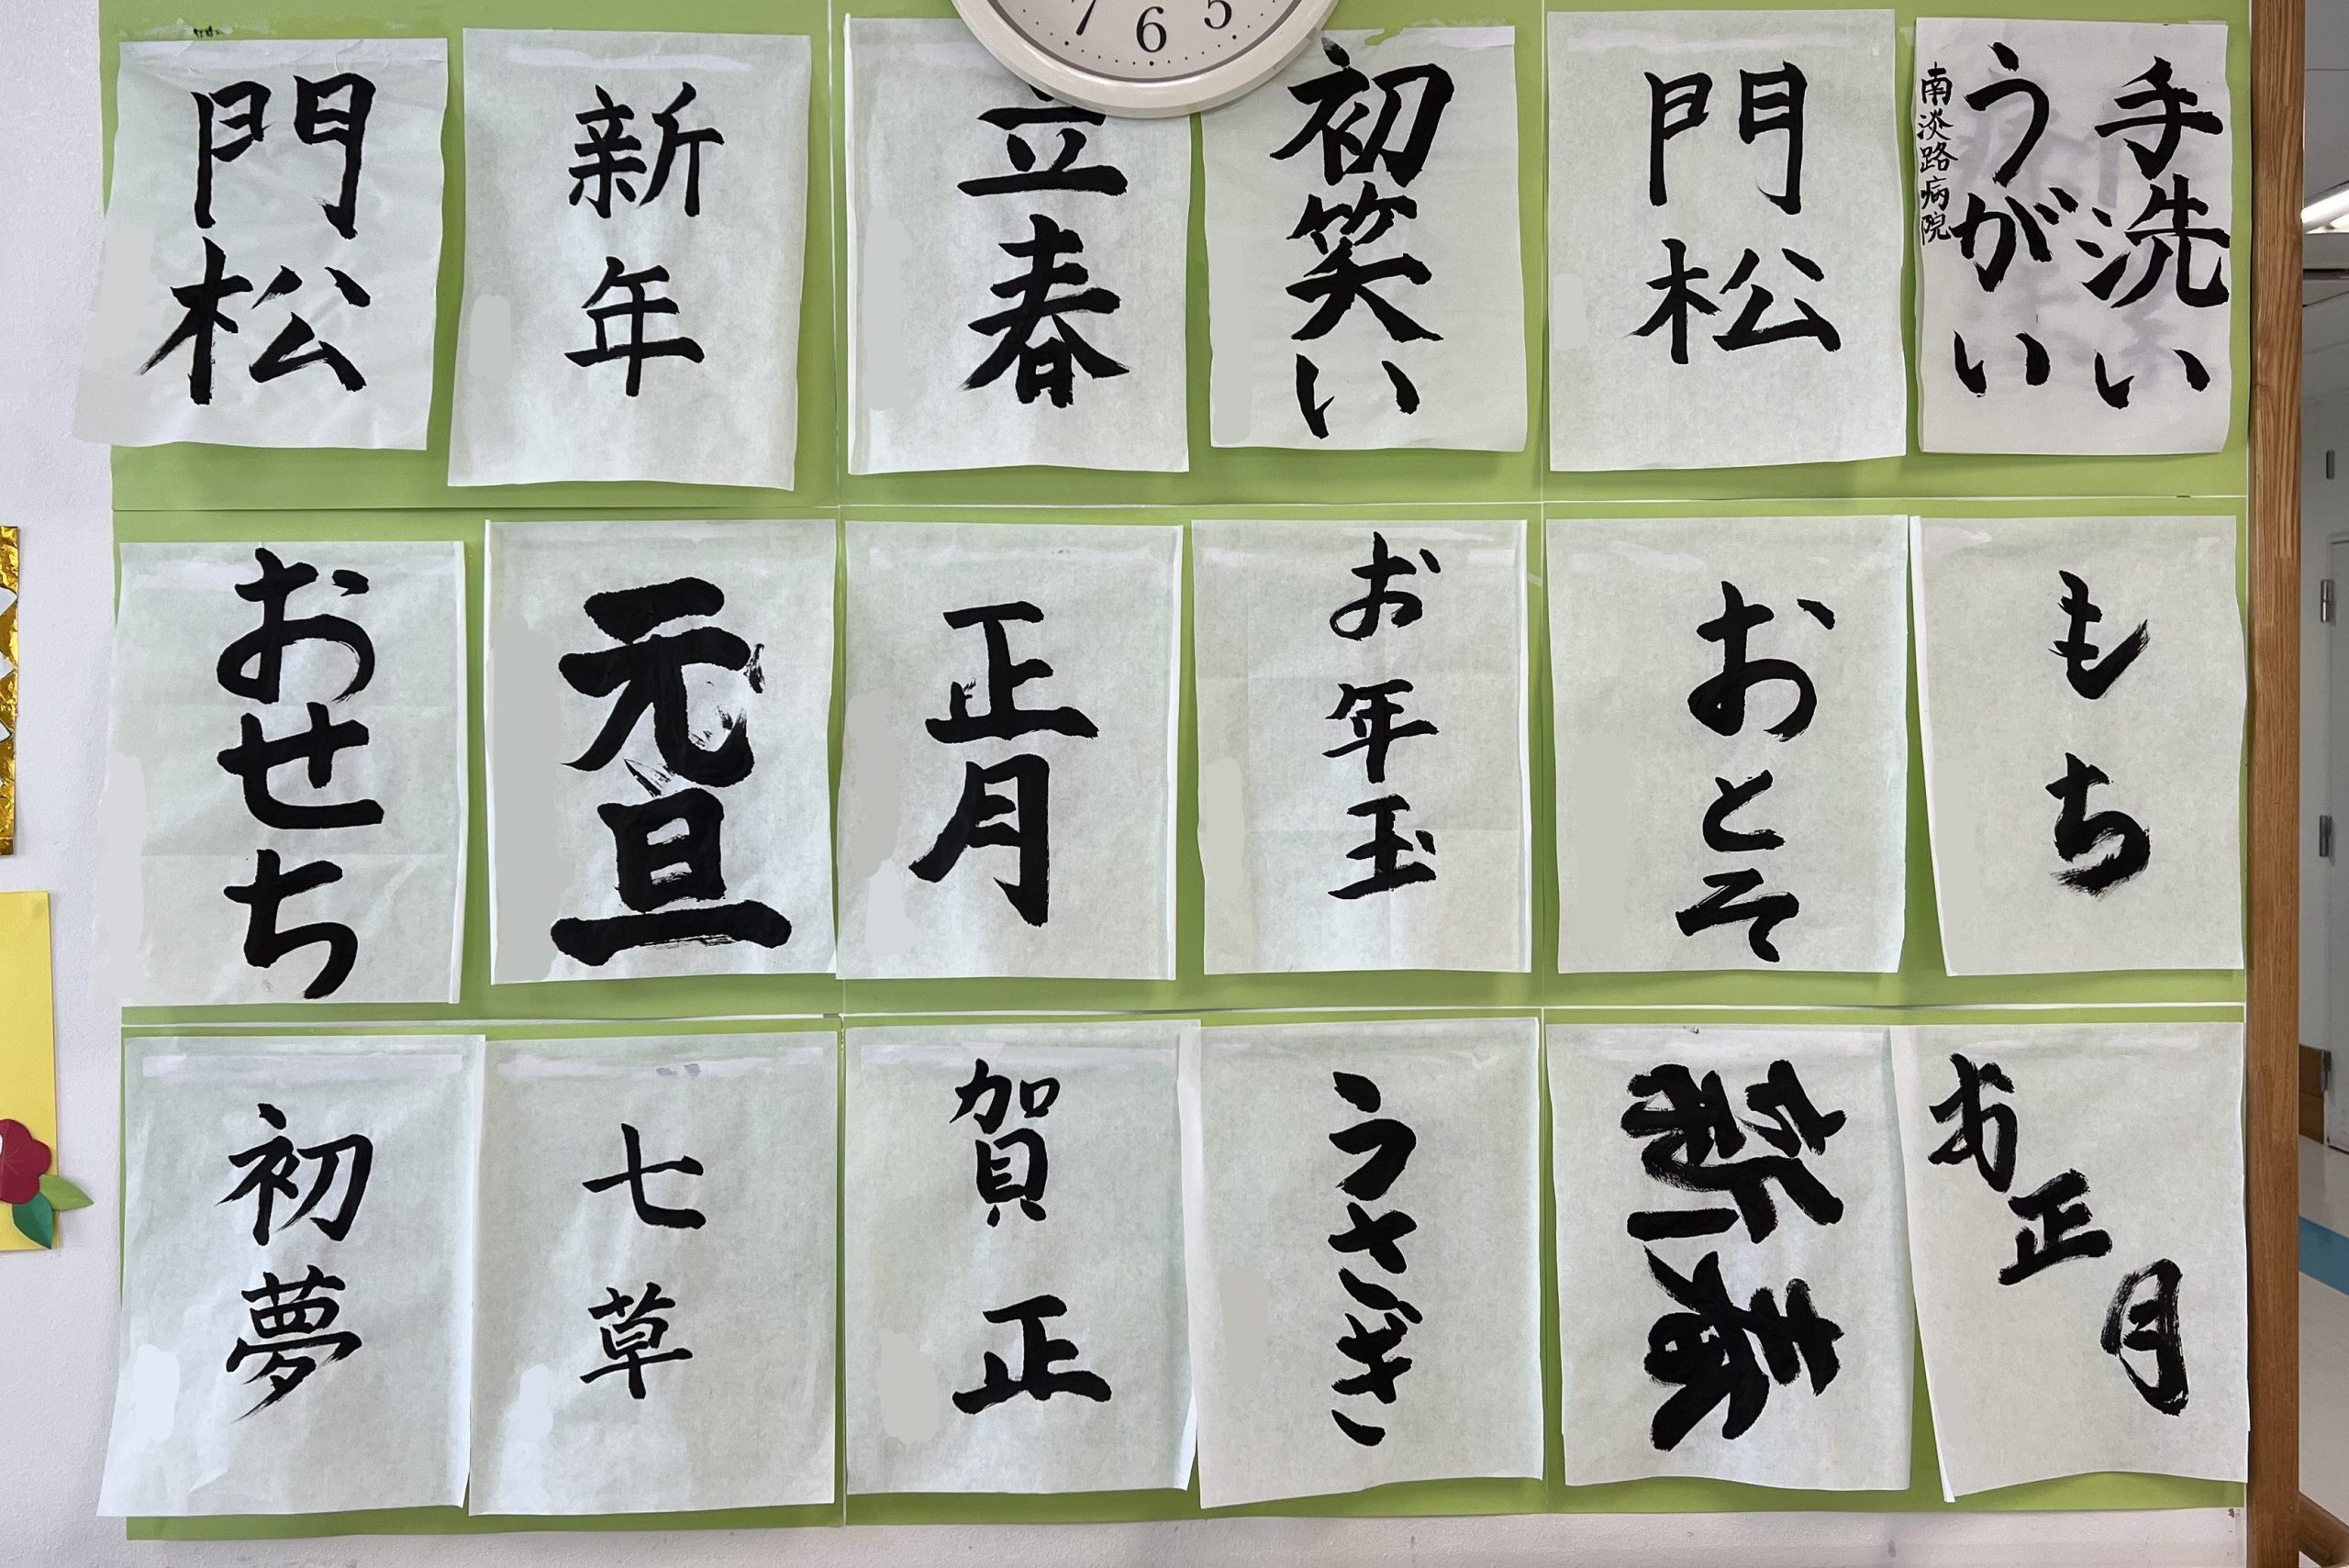 7 6 5
手洗い
うがい
南淡路病院
門松
初笑い
立春
新年
門松
もち
おとそ
お年玉
正月
元旦
おせち
お正月
新春
うさぎ
賀正
七草
初夢